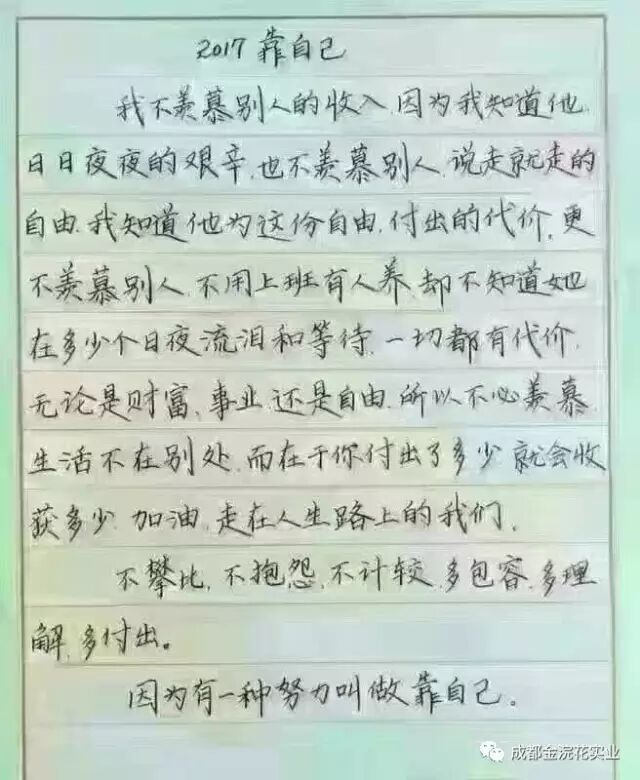 2017靠自己
我不羡慕别人的收入,因为我知道他
日日夜夜的艰辛,也不羡慕别人,说走就走的
自由,我知道他为这份自由,付出的代价,更
不羡慕别人,不用上班有人养,却不知道她
在多少个日夜流泪和等待,一切都有代价,
无论是财富、事业,还是自由,所以不必羡慕,
生活不在别处,而在于你付出了多少就会收
获多少,加油,走在人生路上的我们,
不攀比,不抱怨,不计较,多包容,多理
解,多付出。
因为有一种努力叫做靠自己。
成都金浣花实业